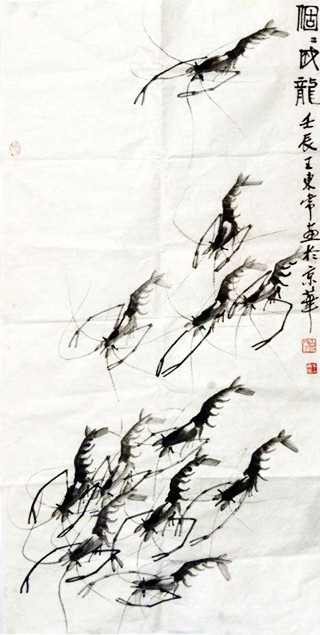 個〻成龍
壬辰王東常画於京華